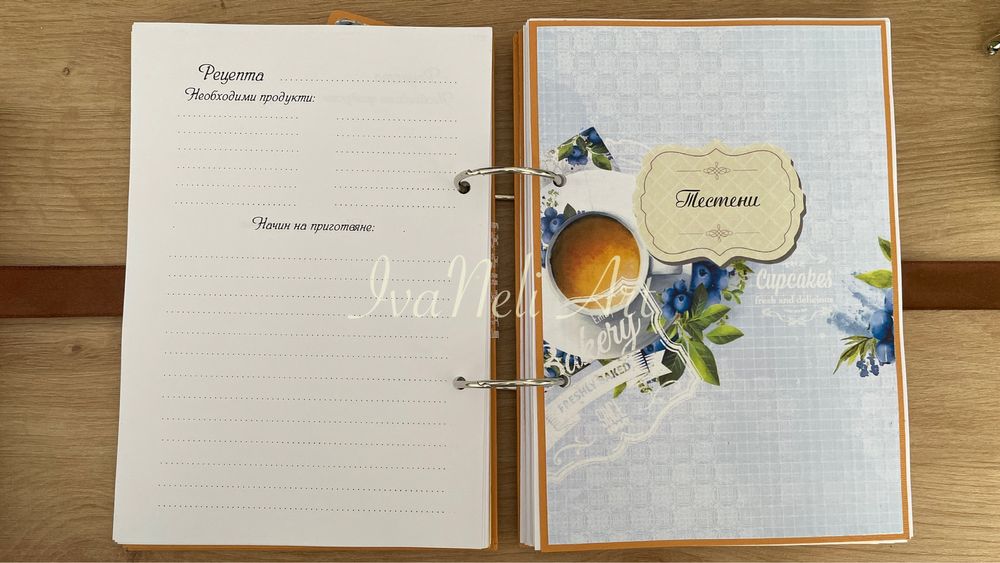 Рецепта
Необходими продукти:
Начин на приготвяне:
IvaNeli Art
Тестени
Cupcakes
fresh and delicious
Bakery
FRESHLY BAKED